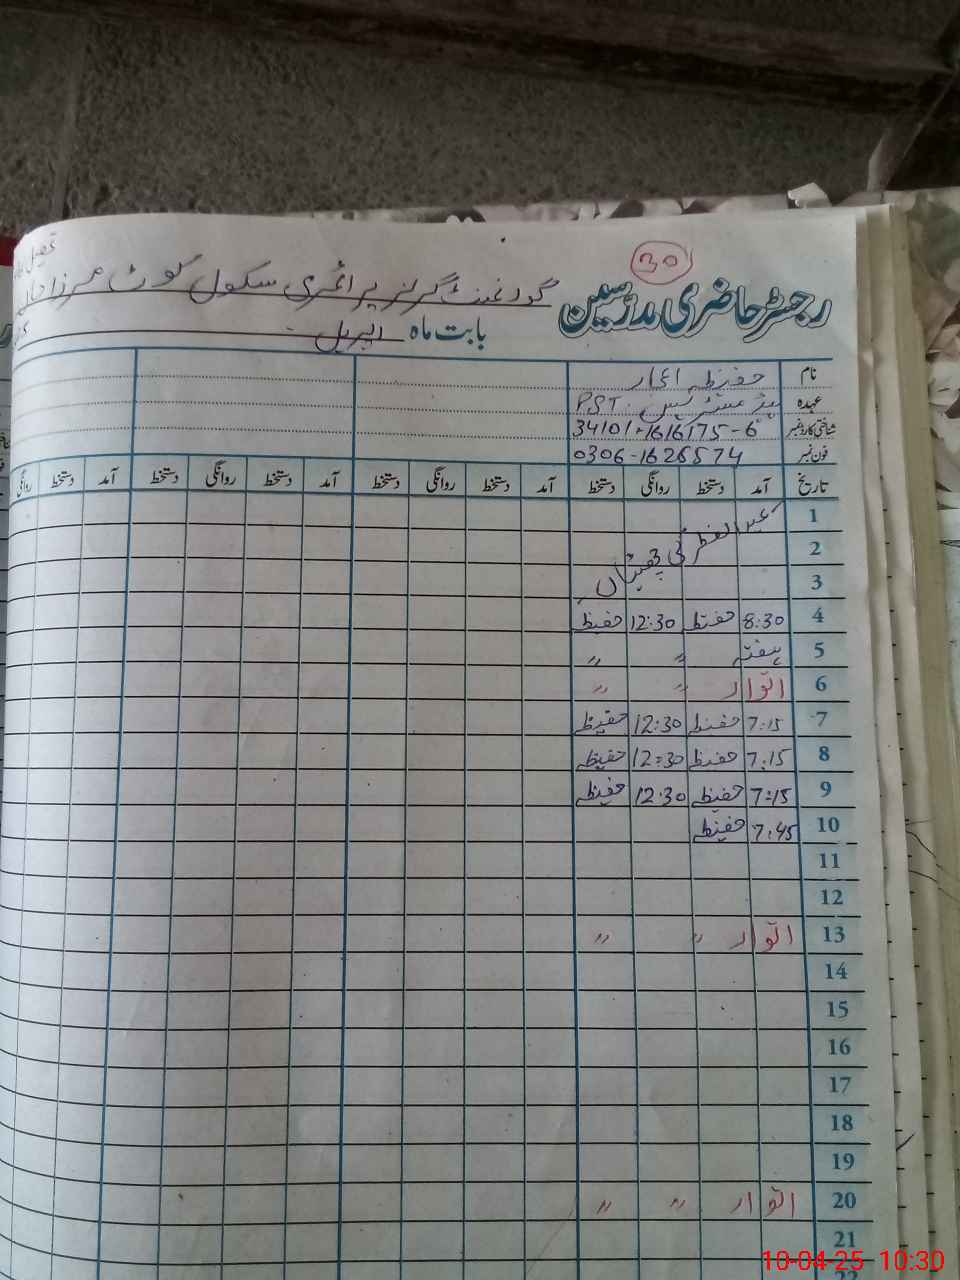 30
رجسٹر حاضری مدرسین گورنمنٹ گرلز پرائمری سکول کوٹ مرزا جان
تحصیل
بابت ماہ اپریل
نام حفیظہ
عہدہ ہیڈ مسٹریس PST
شناختی کارڈ نمبر 34101-1616175-6
فون نمبر 0306-1626574
تاریخ آمد دستخط روانگی دستخط آمد دستخط روانگی دستخط آمد دستخط روانگی دستخط آمد دستخط روانگی
1 عید الفطر کی چھٹیاں
2
3
4 8:30 حفیظہ 12:30 حفیظہ
5 ہفتہ " "
6 اتوار " "
7 7:15 حفیظہ 12:30 حفیظہ
8 7:15 حفیظہ 12:30 حفیظہ
9 7:15 حفیظہ 12:30 حفیظہ
10 7:45 حفیظہ
11
12
13 اتوار " "
14
15
16
17
18
19
20 اتوار " "
21
22
10-04-25 10:30